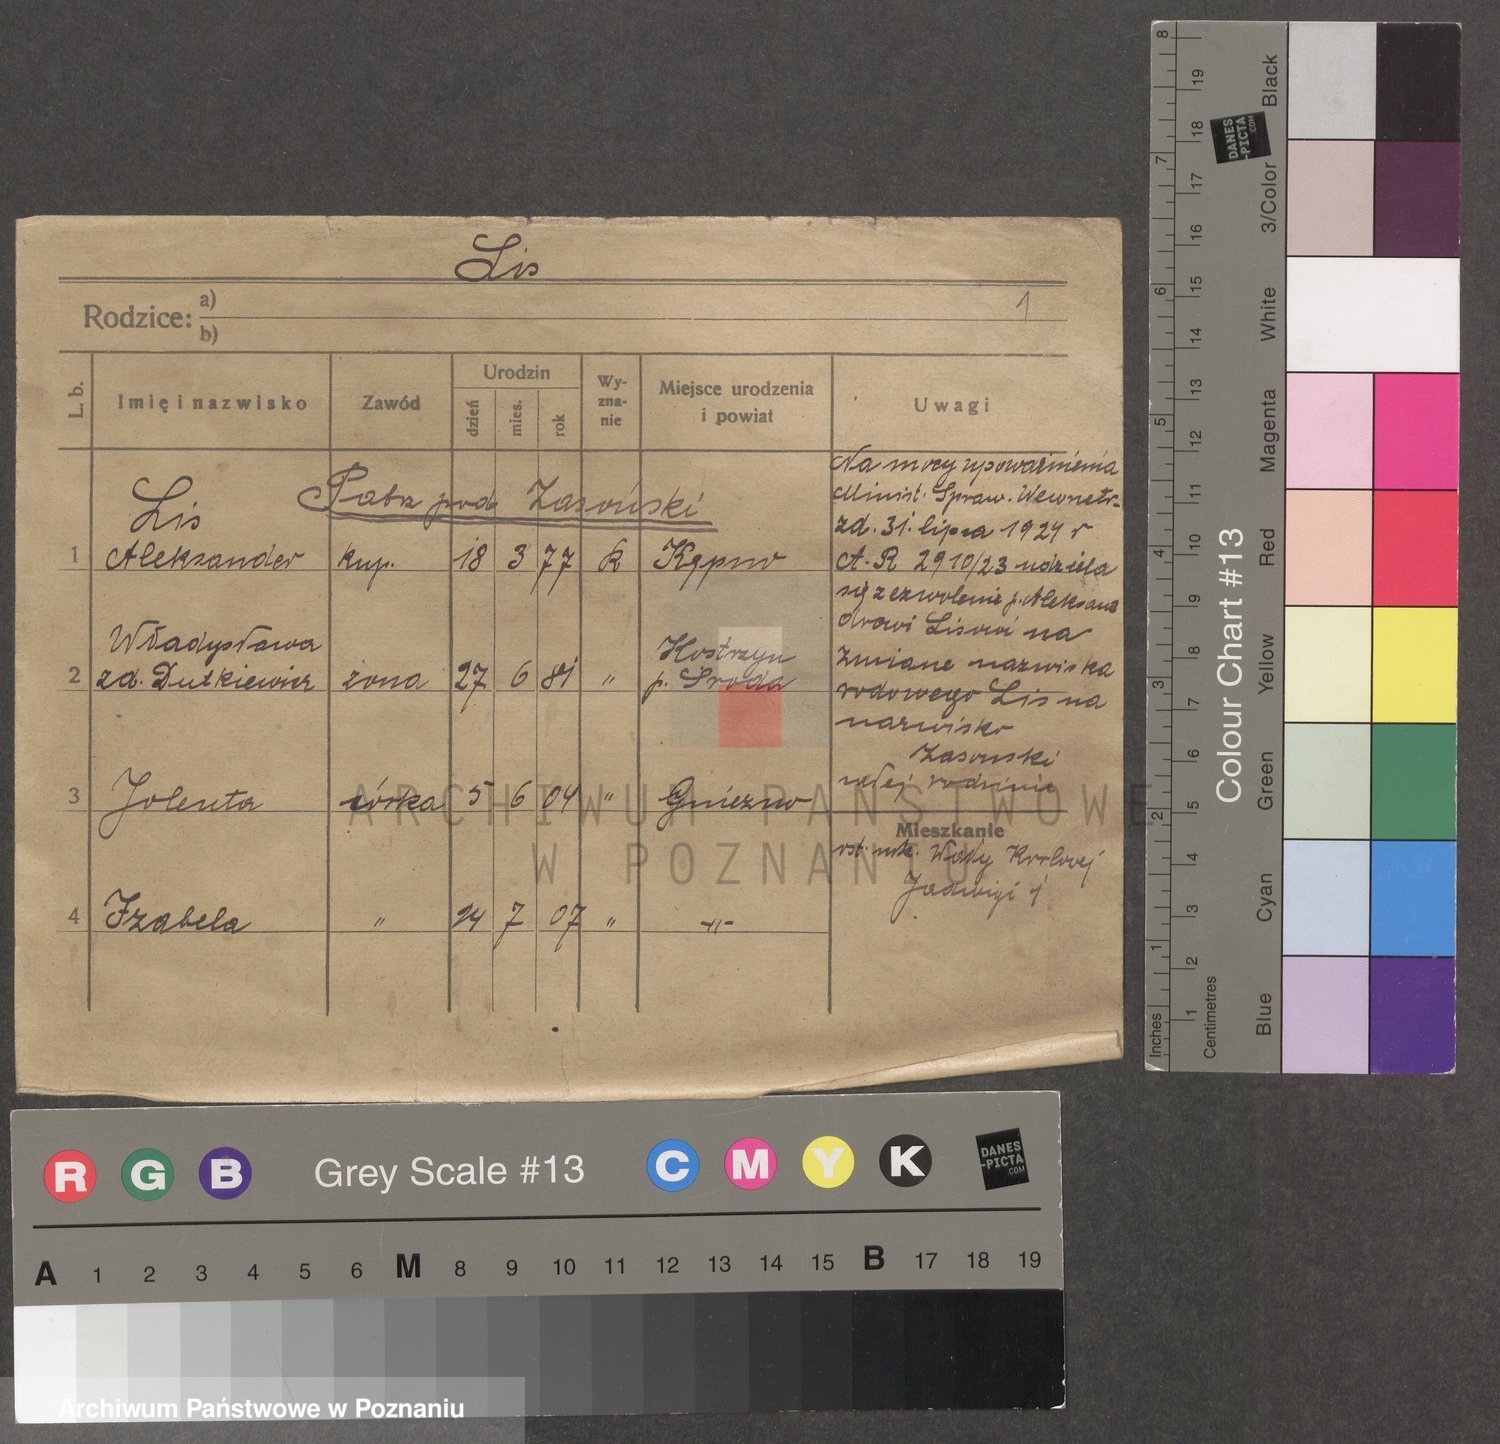 Lis
Rodzice: a)
b)
1
L. b.
Imię i nazwisko
Zawód
Urodzin
dzień
mies.
rok
Wy-
zna-
nie
Miejsce urodzenia
i powiat
Uwagi
Lis
Patrz pod Zasoński
1 Aleksander kup. 18 3 77 k Kępno
Władysława
2 zd. Dutkiewicz żona 27 6 81 " Kostrzyn
p. Środa
3 Jolenta córka 5 6 04 " Gniezno
4 Izabela " 24 7 07 " -"-
Na mocy upoważnienia
Minist. Spraw. Wewnętr.
zd. 31. lipca 1924 r
A. R 2910/23 udziela
się zezwolenie p. Aleksand
drowi Lisowi na
zmianę nazwiska
rodowego Lis na
nazwisko
Zasonski
całej rodzinie
Mieszkanie
Wały Krolovej
Jadwigi 1
ARCHIWUM PAŃSTWOWE
W POZNANIU
R G B Grey Scale #13 C M Y K
DANES
-PICTA
.COM
A 1 2 3 4 5 6 M 8 9 10 11 12 13 14 15 B 17 18 19
Archiwum Państwowe w Poznaniu
Colour Chart #13
DANES
-PICTA
.COM
Blue Cyan Green Yellow Red Magenta White 3/Color Black
Inches 1 2 3 4 5 6 7 8
Centimetres 1 2 3 4 5 6 7 8 9 10 11 12 13 14 15 16 17 18 19